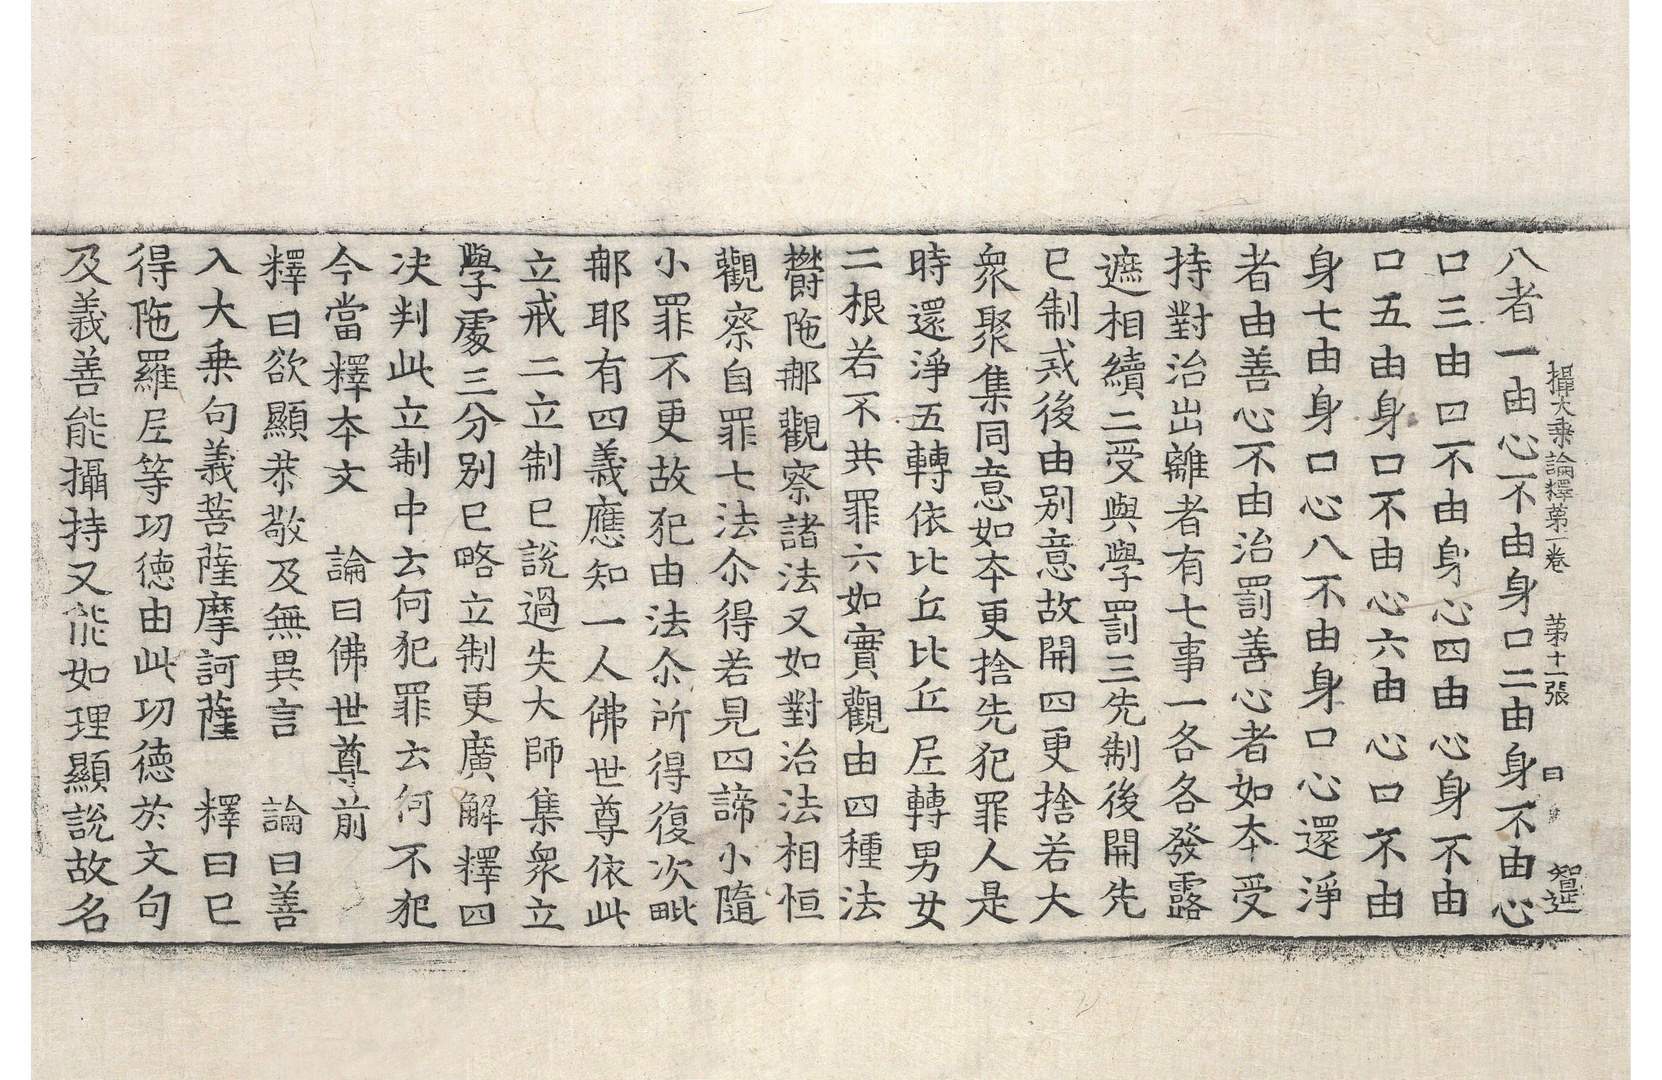 攝大乗論釋第一卷 第十一張 曰 智延
八者一由心不由身口二由身不由心
口三由口不由身心四由心身不由
口五由身口不由心六由心口不由
身七由身口心八不由身口心還淨
者由善心不由治罰善心者如本受
持對治出離者有七事一各各發露
遮相續二受與學罰三先制後開先
已制戒後由別意故開四更捨若大
衆聚集同意如本更捨先犯罪人是
時還淨五轉依比丘比丘尼轉男女
二根若不共罪六如實觀由四種法
欝陁那觀察諸法又如對治法相恒
觀察自罪七法尒得若見四諦小隨
小罪不更故犯由法尒所得復次毗
那耶有四義應知一人佛世尊依此
立戒二立制已說過失大師集衆立
學處三分別已略立制更廣解釋四
决判此立制中云何犯罪云何不犯
今當釋本文 論曰佛世尊前
釋曰欲顯恭敬及無異言 論曰善
入大乗句義菩薩摩訶薩 釋曰已
得陁羅尼等功德由此功德於文句
及義善能攝持又能如理顯說故名